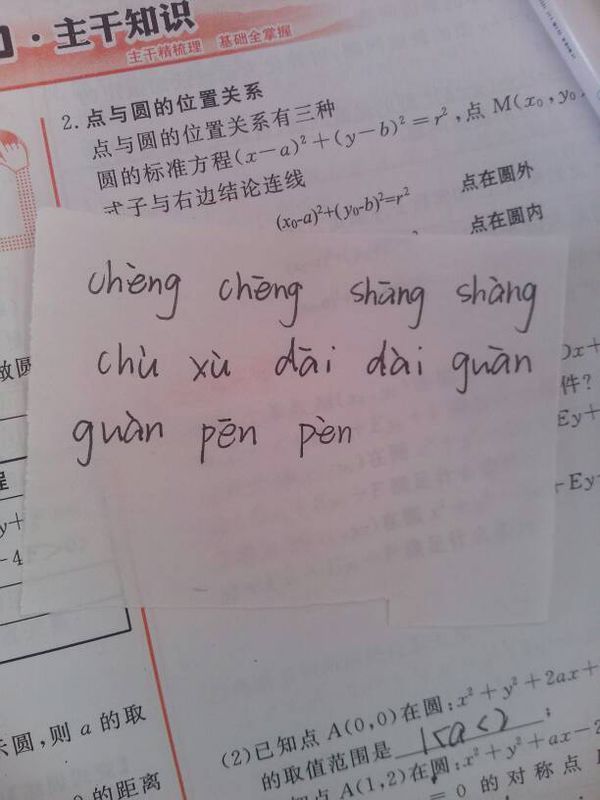 ·主干知识
主干精梳理 基础全掌握
2. 点与圆的位置关系
点与圆的位置关系有三种
圆的标准方程(x-a)²+(y-b)²=r²,点 M(x₀,y₀
式子与右边结论连线
(x₀-a)²+(y₀-b)²=r² 点在圆外
点在圆内
chèng chēng shāng shàng
chù xù dāi dài guàn
guàn pēn pèn
件?
Ey+
-Ey
程
y+
-4
圆,则 a 的取
的距离
(2)已知点 A(0,0)在圆:x²+y²+2ax+
的取值范围是 1<a<2 ;
知点 A(1,2)在圆:x²+y²+ax-2
=0 的对称点